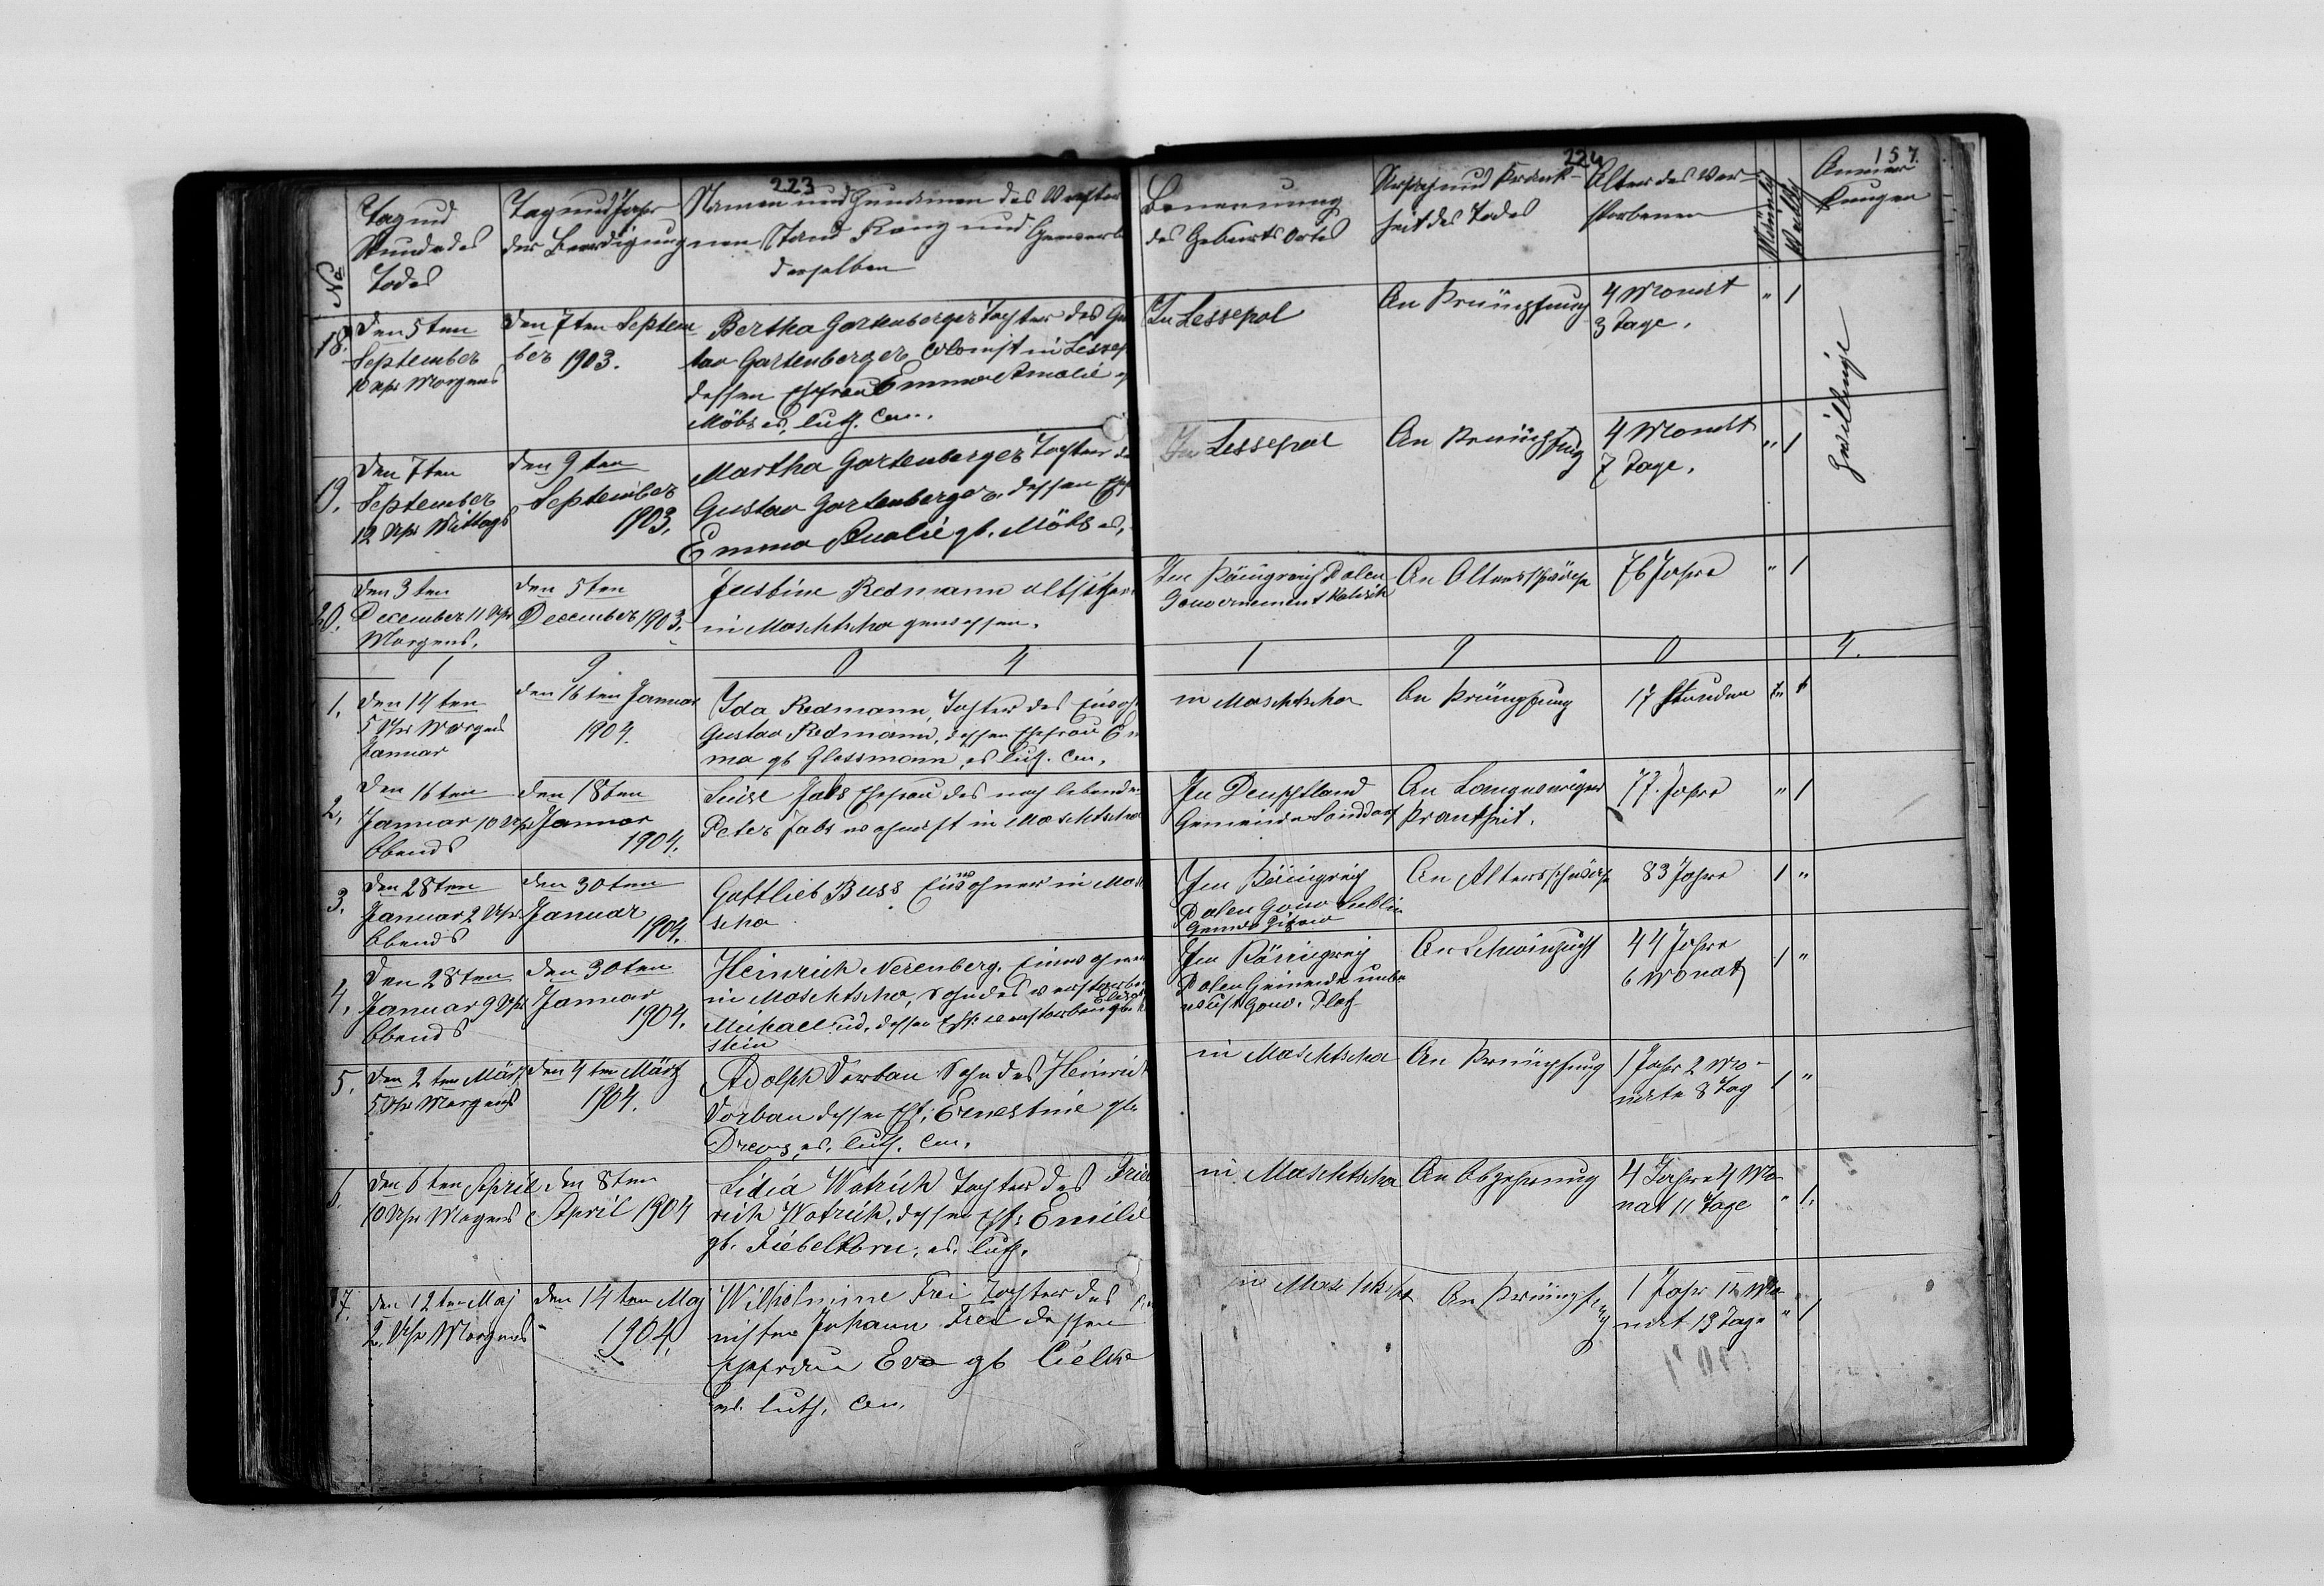 223
No
Tag und
Stunde des
Todes
Tag und Jahr
der Beerdigung
Namen und Zunamen des Verstor
nen Stand Rang und Gewerb
derselben
18.
Den 5ten
September
10 Uhr Morgens
den 7ten Septem
ber 1903.
Bertha Gartenberger Tochter des Gu
tav Gartenberger Colonist in Lessep
dessen Ehefrau Emma Amalie
Möbs ev. luth. Con.
19.
Den 7ten
September
12 Uhr Mittags
den 9ten
September
1903.
Martha Gartenberger Tochter de
Gustav Gartenberger, dessen Ehf
Emma Amalie gb. Möbs ev.
20.
den 3ten
December 11 Uhr
Morgens.
den 5ten
December 1903.
Justine Redmann altsitzeri
in Maschtscha gewessen.
1 9 0 4
1.
den 14ten
5 Uhr Morgens
Januar
den 16ten Januar
1904.
Ida Redmann, Tochter des Einwoh
Gustav Redmann, dessen Ehefrau Em
ma gb Glessmann, ev. luth. Con.
2.
den 16ten
Januar 10 Uhr
Abends
den 18ten
Januar
1904.
Luise Jabs Ehefrau des noch lebende
Peter Jabs wohnhaft in Maschtscha
3.
den 28ten
Januar 2 Uhr
Abends
den 30ten
Januar
1904.
Gottlieb Buss Einwohner in Mas
scha
4.
den 28ten
Januar 9 Uhr
Abends
den 30ten
Januar
1904.
Heinrich Nerenberg, Einwohner
in Maschtscha, Sohn des verstorben
Michael ud. dessen Ehf. verstorben
stein
5.
den 2ten März
5 Uhr Morgens
den 4ten März
1904.
Adolph Dorbau Sohn des Heinrich
Dorbau dessen Ehf: Ernestine gb
Drews, ev. luth. Con.
6.
den 6ten April
10 Uhr Morgens
den 8ten
April 1904
Lidia Watrich Tochter des Fried
rich Watrich, dessen Ehf: Emilie
gb. Fiebelkorn, ev. luth.
7.
den 12ten Maj
2 Uhr Morgens
den 14ten Maj
1904.
Wilhelmine Frei Tochter des
Johann Frei dessen
Ehefrau Eva gb Cielke
ev. luth. Con.
224
157.
Benennung
des Geburts Ortes
Ursach und Krank-
heit des Todes
Alter des Ver-
storbenen
Männlich
Weiblich
Anmer
kungen
In Lessepol
An Krämpfung
4 Monat
3 Tage.
" 1
Zwillinge
In Lessepol
An Krämpfung
4 Monat
7 Tage.
" 1
Im Königreich Polen
Gouvernement Kalisch
An Altersschwäche
76 Jahre
" 1
1 9 0 4.
in Maschtscha
An Krämpfung
17 Stunden
In Deuschland
Gemeinde Landdorf
An Langwieriger
Krankheit.
77. Jahre
" 1
Im Königreich
Polen Gouv Lublin
An Altersschwäche
83 Jahre
1 "
Im Königreich
Polen Gemeinde unbe
wust Gouv. Plotz
An Schwinsucht
44 Jahre
6 Monat
1 "
in Maschtscha
An Krämpfung
1 Jahr 2 Mo-
nate 8 Tag
1 "
in Maschtscha
An Abzehrung
4 Jahre 4 Mo
nat 11 Tage
" 1.
in Maschtscha
An Krämpfung
1 Jahr
nat 13 Tage
" 1